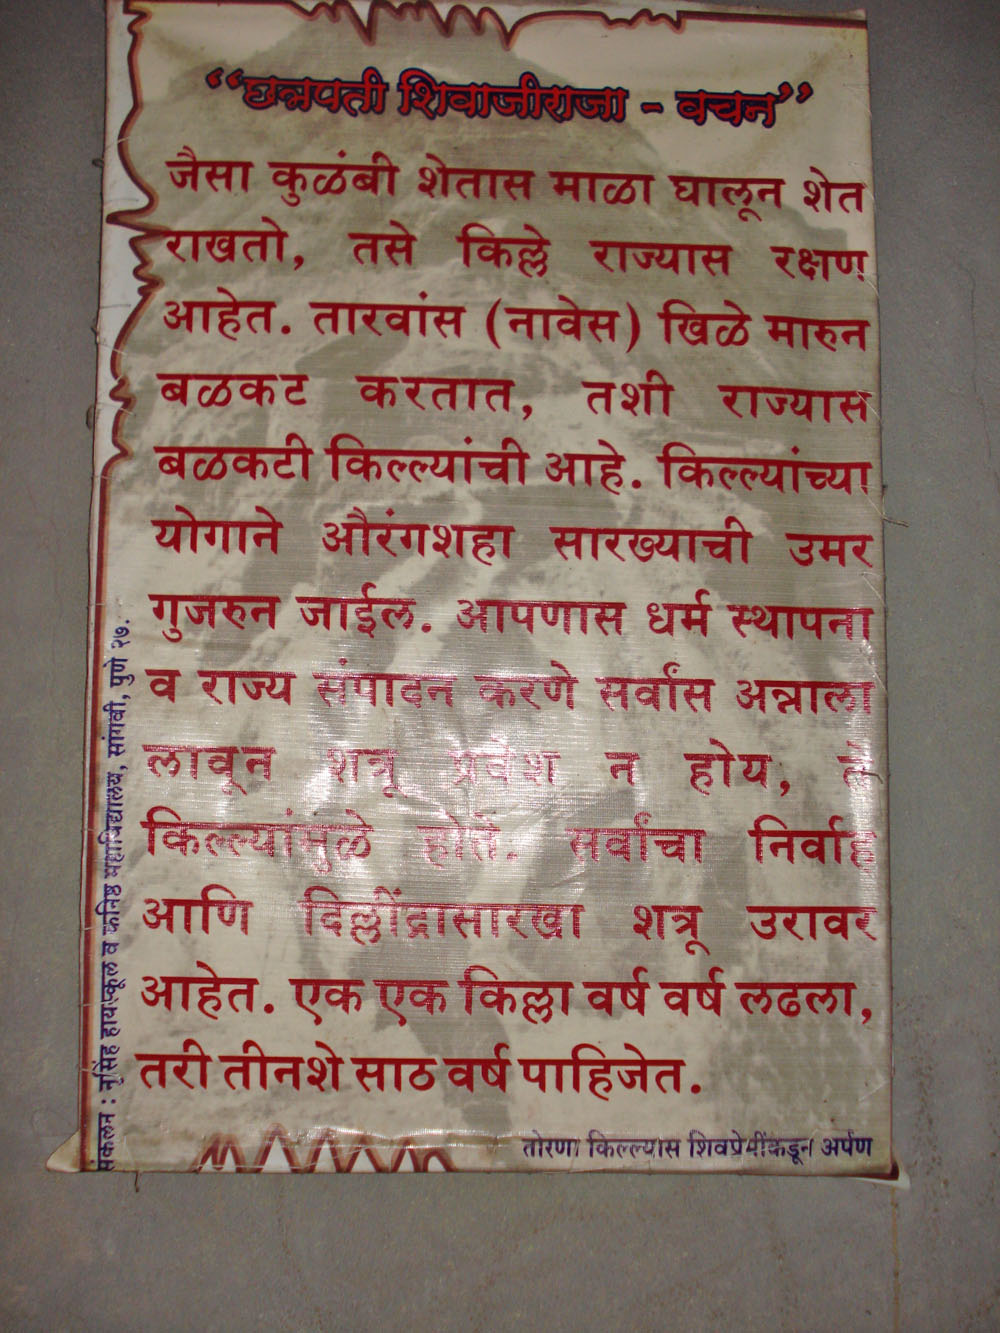 “छत्रपती शिवाजीराजा - वचन”
जैसा कुळंबी शेतास माळा घालून शेत
राखतो, तसे किल्ले राज्यास रक्षण
आहेत. तारवांस (नावेस) खिळे मारुन
बळकट करतात, तशी राज्यास
बळकटी किल्ल्यांची आहे. किल्ल्यांच्या
योगाने औरंगशहा सारख्याची उमर
गुजरुन जाईल. आपणास धर्म स्थापना
व राज्य संपादन करणे सर्वांस अन्नाला
लावून शत्रू प्रवेश न होय, ते
किल्ल्यांमुळे होते. सर्वांचा निर्वाह
आणि दिल्लींद्रासारखा शत्रू उरावर
आहेत. एक एक किल्ला वर्ष वर्ष लढला,
तरी तीनशे साठ वर्ष पाहिजेत.
तोरणा किल्ल्यास शिवप्रेमींकडून अर्पण
संकलन : नृसिंह हायस्कूल व कनिष्ठ महाविद्यालय, सांगवी, पुणे २७.